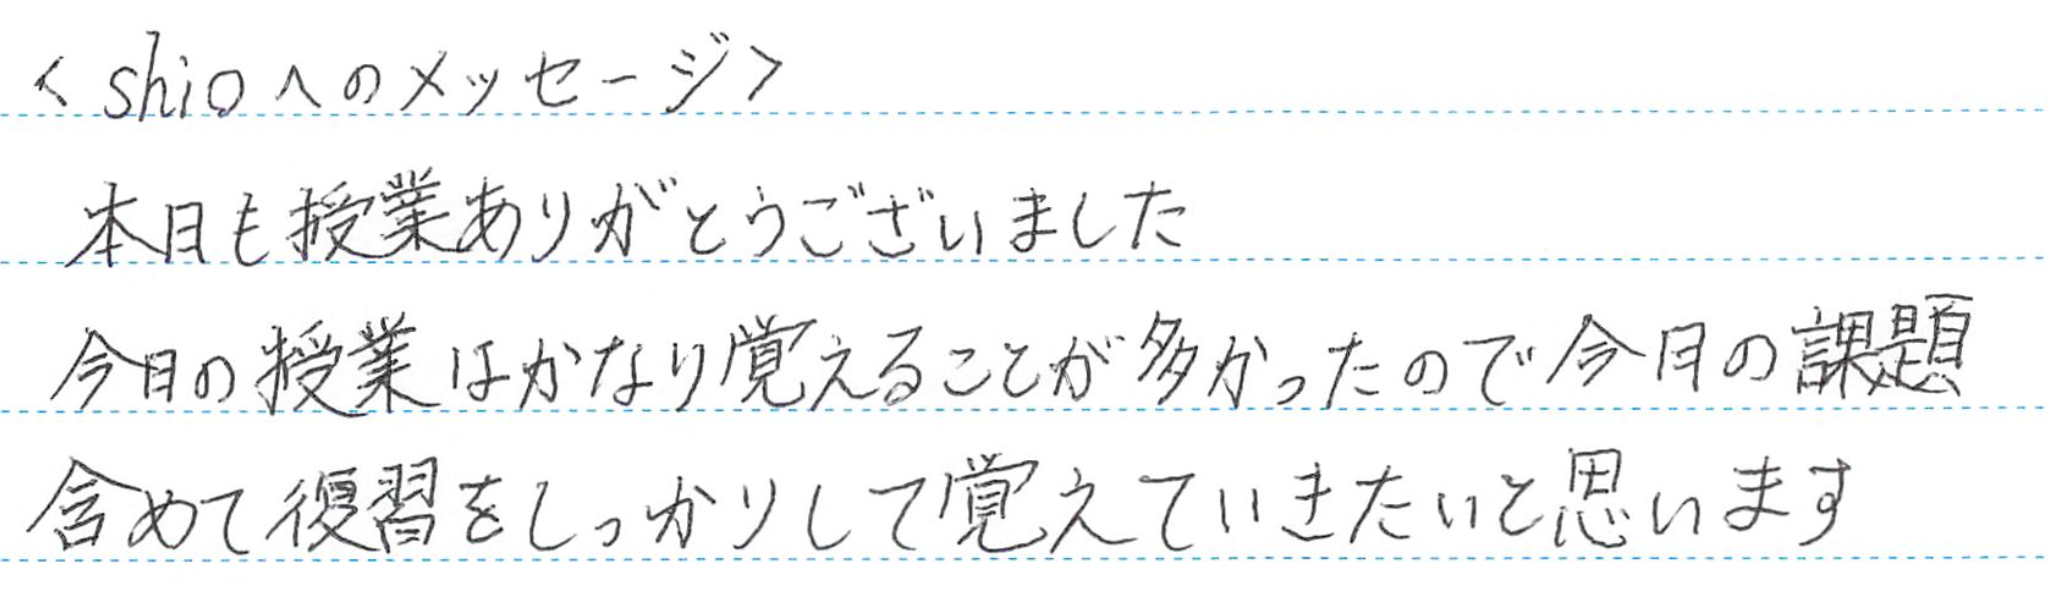 <shioへのメッセージ>
本日も授業ありがとうございました
今日の授業はかなり覚えることが多かったので今日の課題
含めて復習をしっかりして覚えていきたいと思います